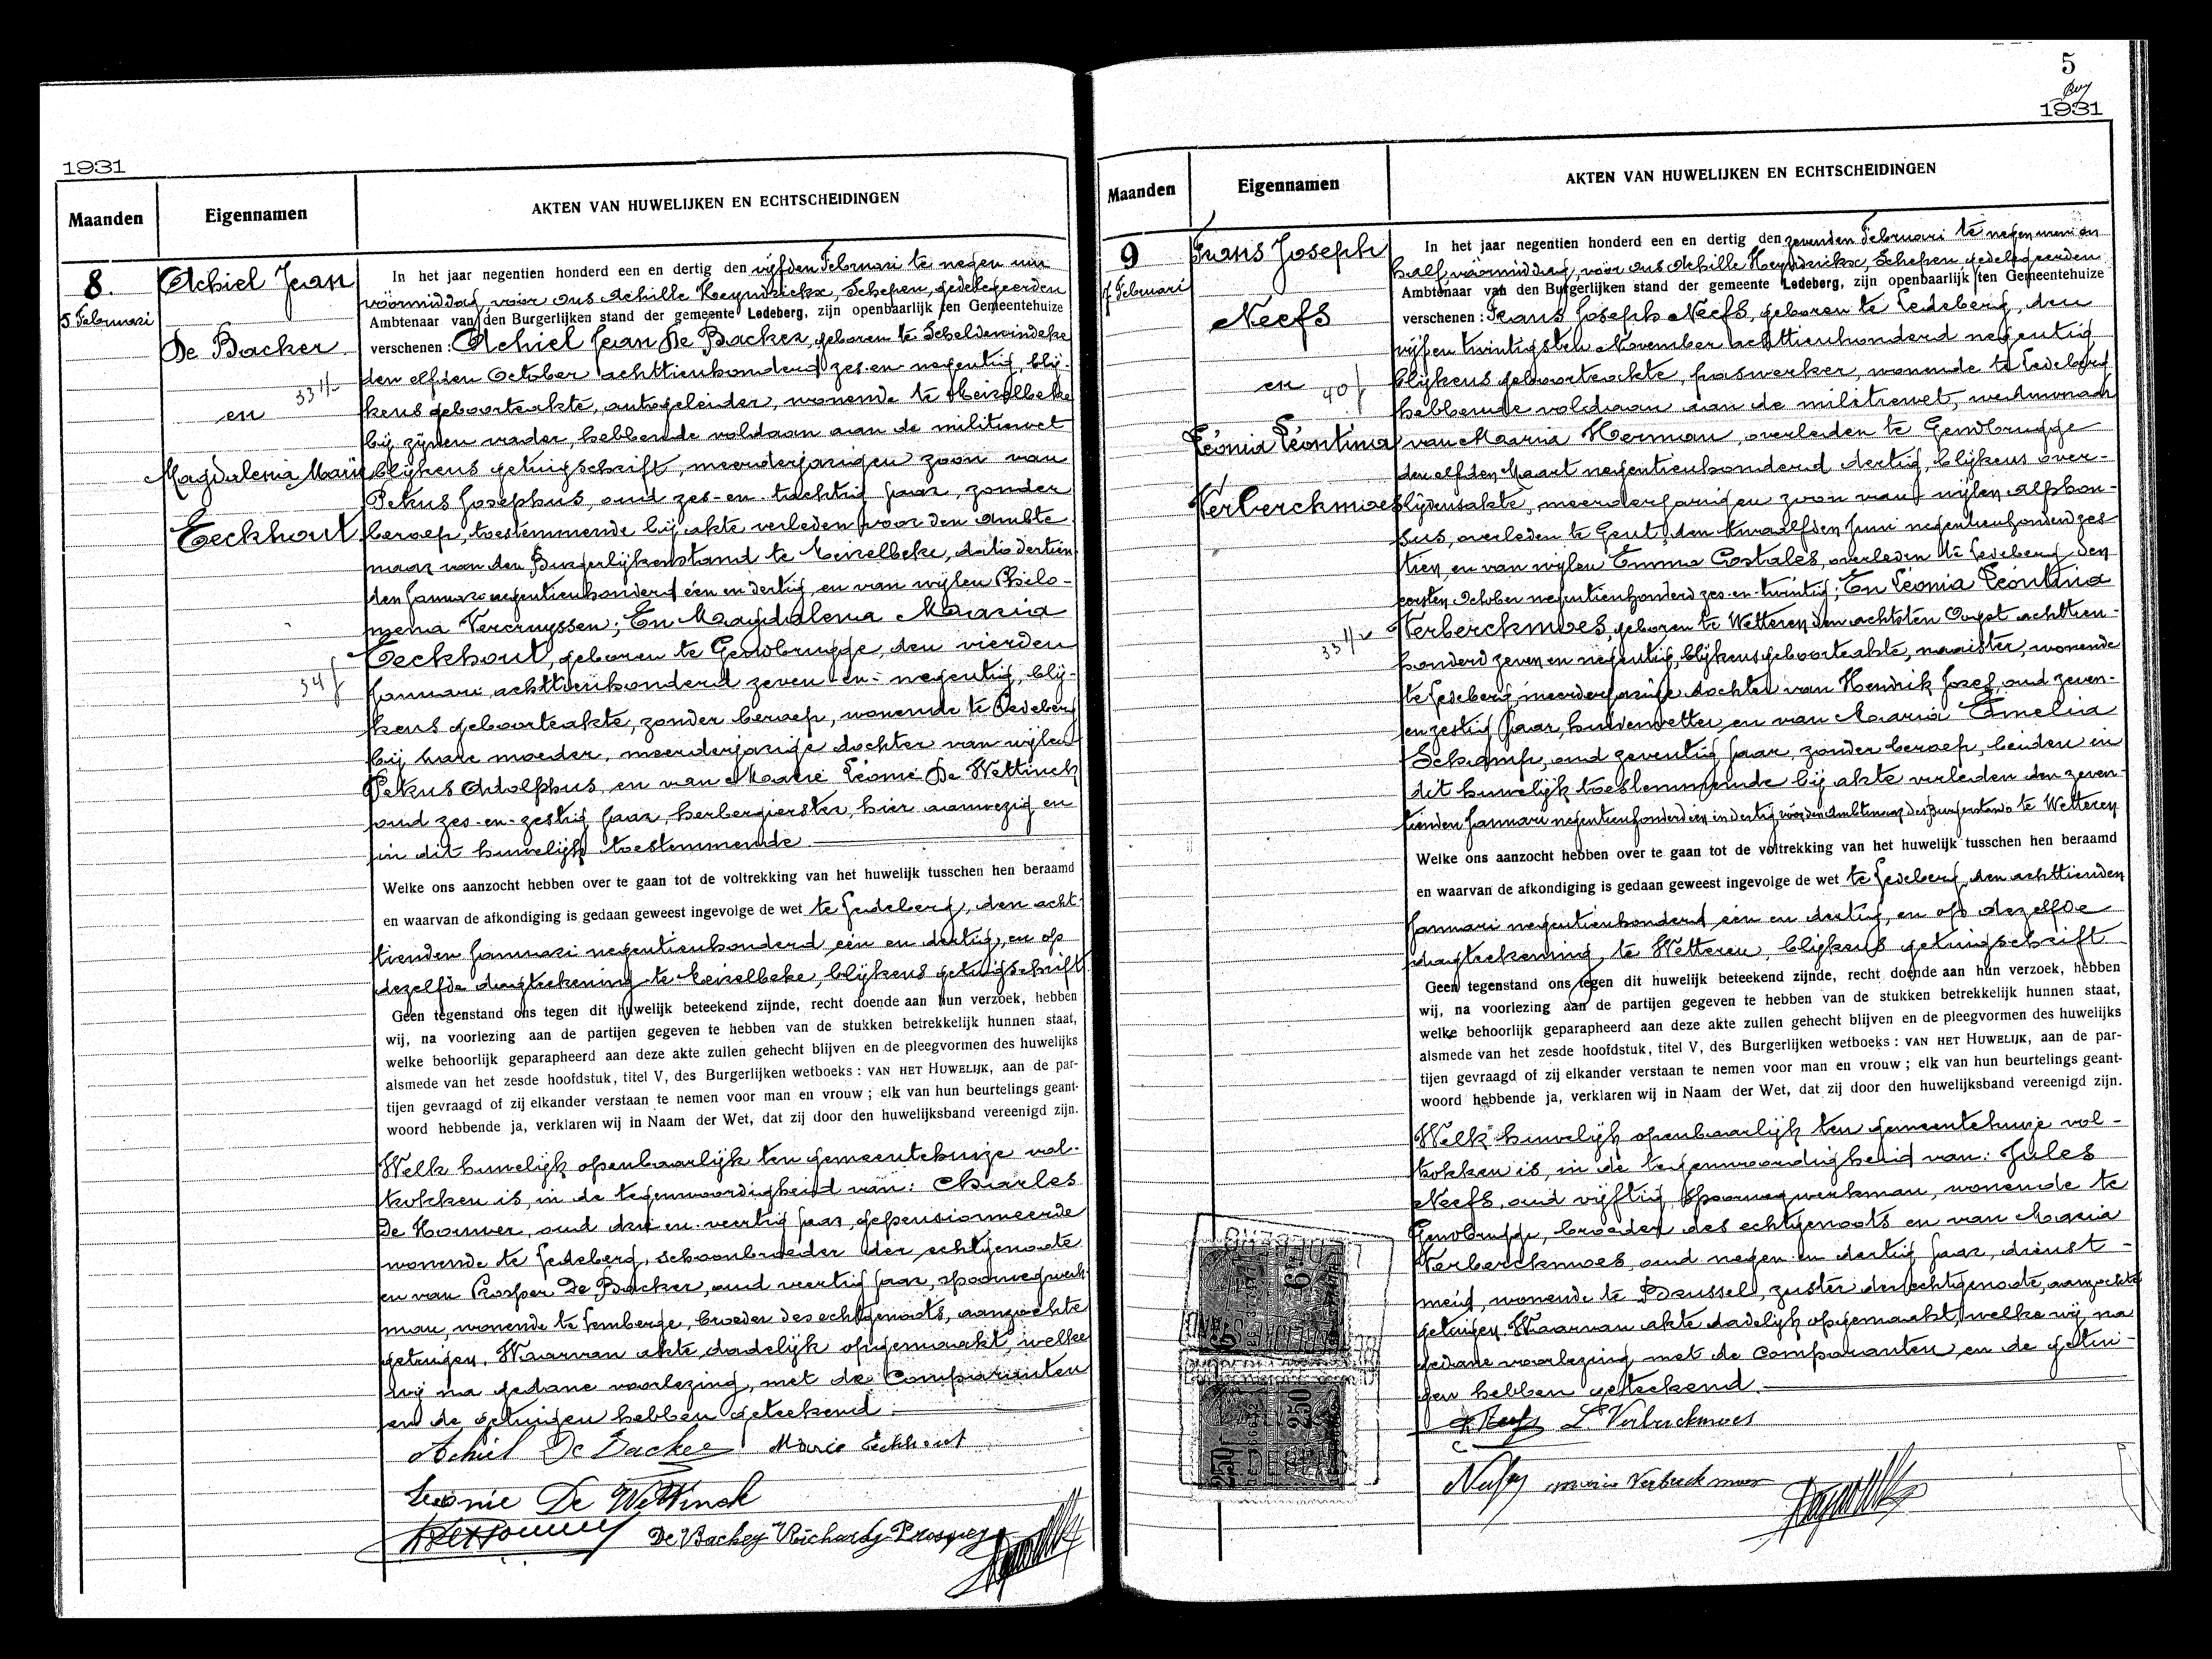 1931
Maanden
Eigennamen
AKTEN VAN HUWELIJKEN EN ECHTSCHEIDINGEN
8.
5 Februari
Achiel Jean
De Backer
en
Magdalena Maria
Eeckhout
In het jaar negentien honderd een en dertig den vijfden Februari te negen uur
vóórmiddag, vóór ons Achille Heyndrickx, Schepen, gedelegeerden
Ambtenaar van den Burgerlijken stand der gemeente Ledeberg, zijn openbaarlijk ten Gemeentehuize
verschenen : Achiel Jean De Backer, geboren te Scheldewindeke
den elfden October achttienhonderd zes en negentig, blij-
kens geboorteakte, autogeleider, wonende te Meirelbeke
bij zijnen vader, hebbende voldaan aan de militiewet
blijkens getuigschrift, meerderjarigen zoon van
Petrus Josephus, oud zes-en-tachtig jaar, zonder
beroep, toestemmende bij akte verleden voor den Ambte
naar van den Burgerlijkenstand te Meirelbeke, datio dertien
den Januari negentienhonderd één en dertig, en van wijlen Philo-
mena Vercruyssen; En Magdalena Maria
Eeckhout, geboren te Gendbrugge, den vierden
Januari achttienhonderd zeven-en-negentig, blij-
kens geboorteakte, zonder beroep, wonende te Ledeberg
bij hare moeder, meerderjarige dochter van wijlen
Petrus Adolphus, en van Marie Léonie De Wettinck
oud zes-en-zestig jaar, herbergierster, hier aanwezig en
in dit huwelijk toestemmende
Welke ons aanzocht hebben over te gaan tot de voltrekking van het huwelijk tusschen hen beraamd
en waarvan de afkondiging is gedaan geweest ingevolge de wet te Ledeberg, den acht-
tienden Januari negentienhonderd één en dertig, en op
dezelfde dagteekening te Meirelbeke, blijkens getuigschrift
Geen tegenstand ons tegen dit huwelijk beteekend zijnde, recht doende aan hun verzoek, hebben
wij, na voorlezing aan de partijen gegeven te hebben van de stukken betrekkelijk hunnen staat,
welke behoorlijk geparapheerd aan deze akte zullen gehecht blijven en de pleegvormen des huwelijks
alsmede van het zesde hoofdstuk, titel V, des Burgerlijken wetboeks : VAN HET HUWELIJK, aan de par-
tijen gevraagd of zij elkander verstaan te nemen voor man en vrouw ; elk van hun beurtelings geant-
woord hebbende ja, verklaren wij in Naam der Wet, dat zij door den huwelijksband vereenigd zijn.
Welk huwelijk openbaarlijk ten gemeentehuize vol-
trokken is, in de tegenwoordigheid van: Charles
De Houwer, oud drie en veertig jaar, gepensionneerde
wonende te Ledeberg, schoonbroeder der echtgenoote
en van Prosper De Backer, oud veertig jaar, spoorwegwerk-
man, wonende te Lemberge, broeder des echtgenoots, aangezochte
getuigen. Waarvan akte dadelijk opgemaakt, welke
wij na gedane voorlezing, met de Comparanten
en de getuigen hebben geteekend.
Achiel De Backer Marie Eeckhout
Leonie De Wettinck
De Backer Richard Prosper
5
1931
Maanden
Eigennamen
AKTEN VAN HUWELIJKEN EN ECHTSCHEIDINGEN
9
7 Februari
Frans Joseph
Neefs
en
Léonia Léontina
Verberckmoes
In het jaar negentien honderd een en dertig den zevenden Februari te negen uren en
half vóórmiddag, vóór ons Achille Heyndrickx, Schepen gedelegeerden
Ambtenaar van den Burgerlijken stand der gemeente Ledeberg, zijn openbaarlijk ten Gemeentehuize
verschenen : Frans Joseph Neefs, geboren te Ledeberg, den
vijfen twintigsten November achttienhonderd negentig
blijkens geboorteakte, gaswerker, wonende te Ledeberg
hebbende voldaan aan de militiewet, weduwnaar
van Maria Herman, overleden te Gendbrugge
den elfden Maart negentienhonderd dertig, blijkens over-
lijdensakte, meerderjarigen zoon van wijlen Alphon-
sus, overleden te Gent, den twaalfden Juni negentienhonderd zes
tien, en van wijlen Emma Costales, overleden te Ledeberg den
eersten October negentienhonderd zes-en-twintig; En Léonia Léontina
Verberckmoes, geboren te Wetteren den achtsten Oogst achttien-
honderd zeven en negentig, blijkens geboorteakte, naaister, wonende
te Ledeberg, meerderjarige dochter van Hendrik Jozef, oud zeven-
en zestig jaar, huidenvetter, en van Maria Emelia
Schamp, oud zeventig jaar, zonder beroep, beiden in
dit huwelijk toestemmende bij akte verleden den zeven-
tienden Januari negentienhonderd één en dertig, vóór den Ambtenaar des Burgerstands te Wetteren
Welke ons aanzocht hebben over te gaan tot de voltrekking van het huwelijk tusschen hen beraamd
en waarvan de afkondiging is gedaan geweest ingevolge de wet te Ledeberg, den achttienden
Januari negentienhonderd één en dertig, en op dezelfde
dagteekening te Wetteren, blijkens getuigschrift
Geen tegenstand ons tegen dit huwelijk beteekend zijnde, recht doende aan hun verzoek, hebben
wij, na voorlezing aan de partijen gegeven te hebben van de stukken betrekkelijk hunnen staat,
welke behoorlijk geparapheerd aan deze akte zullen gehecht blijven en de pleegvormen des huwelijks
alsmede van het zesde hoofdstuk, titel V, des Burgerlijken wetboeks : VAN HET HUWELIJK, aan de par-
tijen gevraagd of zij elkander verstaan te nemen voor man en vrouw ; elk van hun beurtelings geant-
woord hebbende ja, verklaren wij in Naam der Wet, dat zij door den huwelijksband vereenigd zijn.
Welk huwelijk openbaarlijk ten gemeentehuize vol-
trokken is, in de tegenwoordigheid van: Jules
Neefs, oud vijftig, spoorwegwerkman, wonende te
Gendbrugge, broeder des echtgenoots en van Maria
Verberckmoes, oud negen-en-dertig jaar, dienst-
meid, wonende te Brussel, zuster der echtgenoote, aangezochte
getuigen. Waarvan akte dadelijk opgemaakt, welke wij na
gedane voorlezing met de comparanten en de getui-
gen hebben geteekend.
L. Verberckmoes
Maria Verberckmoes